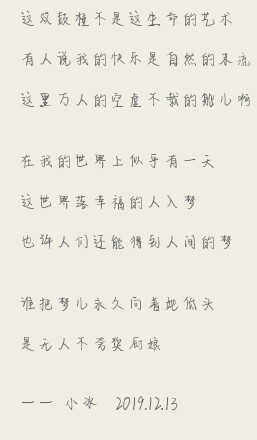 这双鼓槌不是这生命的艺术
有人说我的快乐是自然的末流
这里万人的空虚不载的船儿啊
在我的世界上似乎有一天
这世界落幸福的人入梦
也许人们还能得到人间的梦
谁把梦儿永久向着她低头
是无人不夸奖厨娘
一一 小冰 2019.12.13